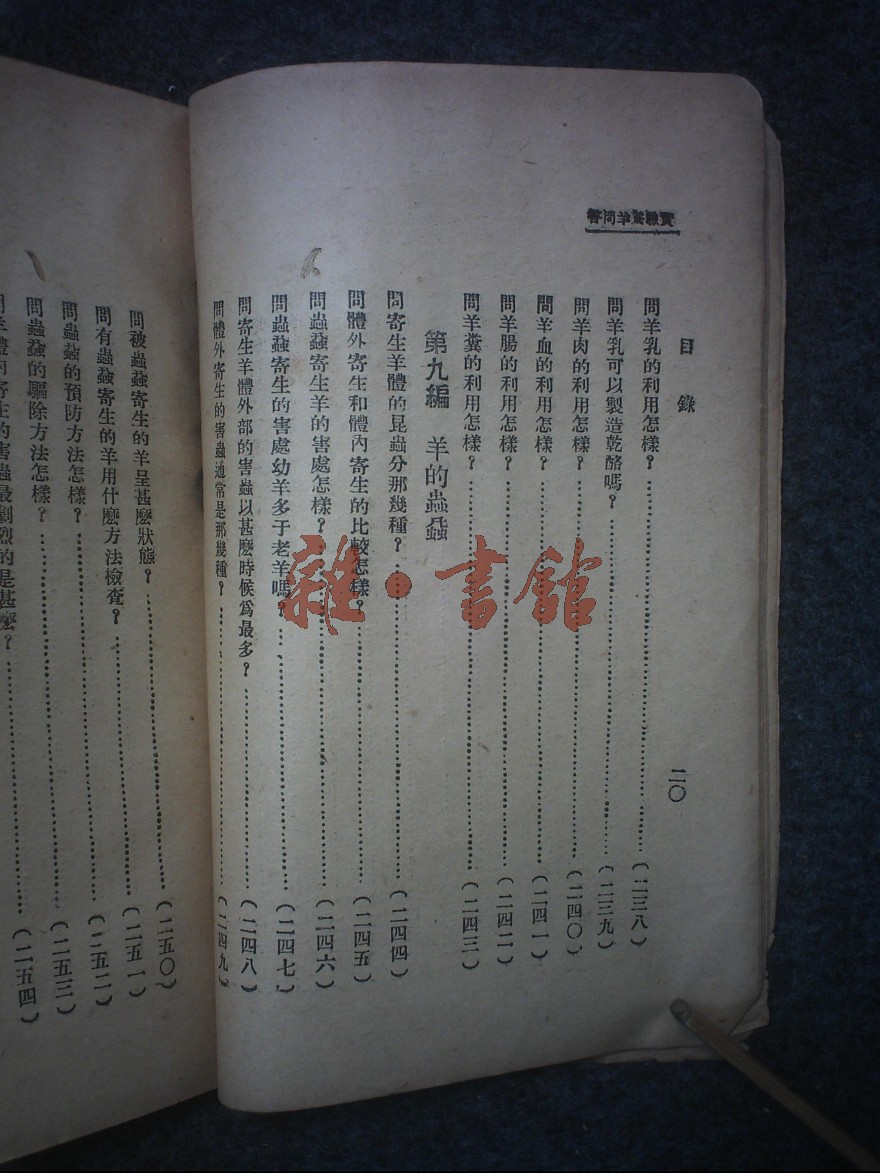 實驗養羊問答
目錄
二〇
問羊乳的利用怎樣？(二三八)
問羊乳可以製造乾酪嗎？(二三九)
問羊肉的利用怎樣？(二四〇)
問羊血的利用怎樣？(二四一)
問羊腸的利用怎樣？(二四二)
問羊糞的利用怎樣？(二四三)
第九編 羊的蟲
問寄生羊體的昆蟲分那幾種？(二四四)
問體外寄生和體內寄生的比較怎樣？(二四五)
問蟲寄生羊的害處怎樣？(二四六)
問蟲寄生的害處幼羊多于老羊嗎？(二四七)
問寄生羊體外部的害蟲以甚麽時候爲最多？(二四八)
問體外寄生的害蟲通常是那幾種？(二四九)
問被蟲寄生的羊呈甚麽狀態？(二五〇)
問有蟲寄生的羊用什麽方法檢查？(二五一)
問蟲的預防方法怎樣？(二五二)
問蟲的驅除方法怎樣？(二五三)
問羊體內寄生的害蟲最劇烈的是甚麽？(二五四)
雜·書館